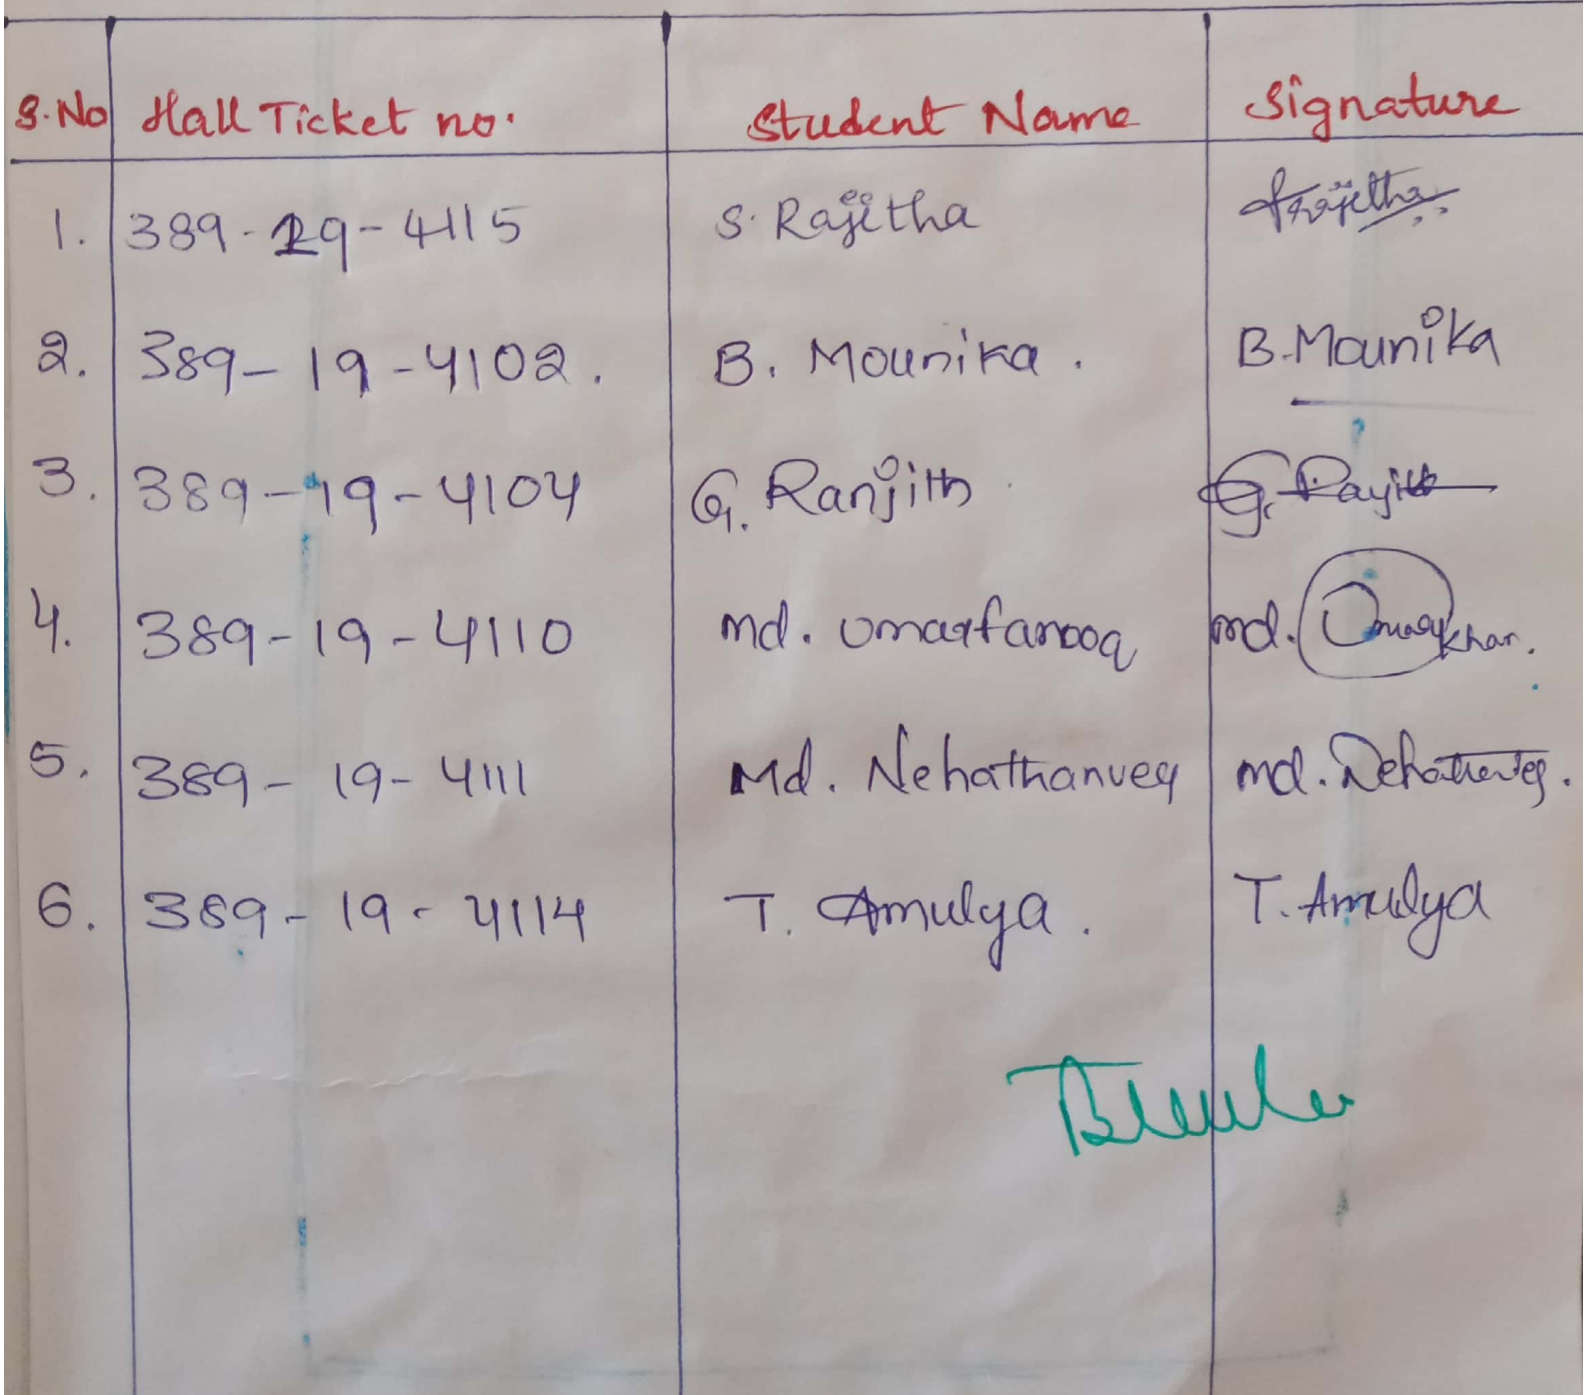 S.No Hall Ticket no. Student Name Signature
1. 389-29-4115 S. Rajitha
2. 389-19-4102. B. Mounika. B.Mounika
3. 389-19-4104 G. Ranjith G.
4. 389-19-4110 md. umarfarooq md. khan.
5. 389-19-4111 Md. Nehathanver md.
6. 389-19-4114 T. Amulya. T. Amulya